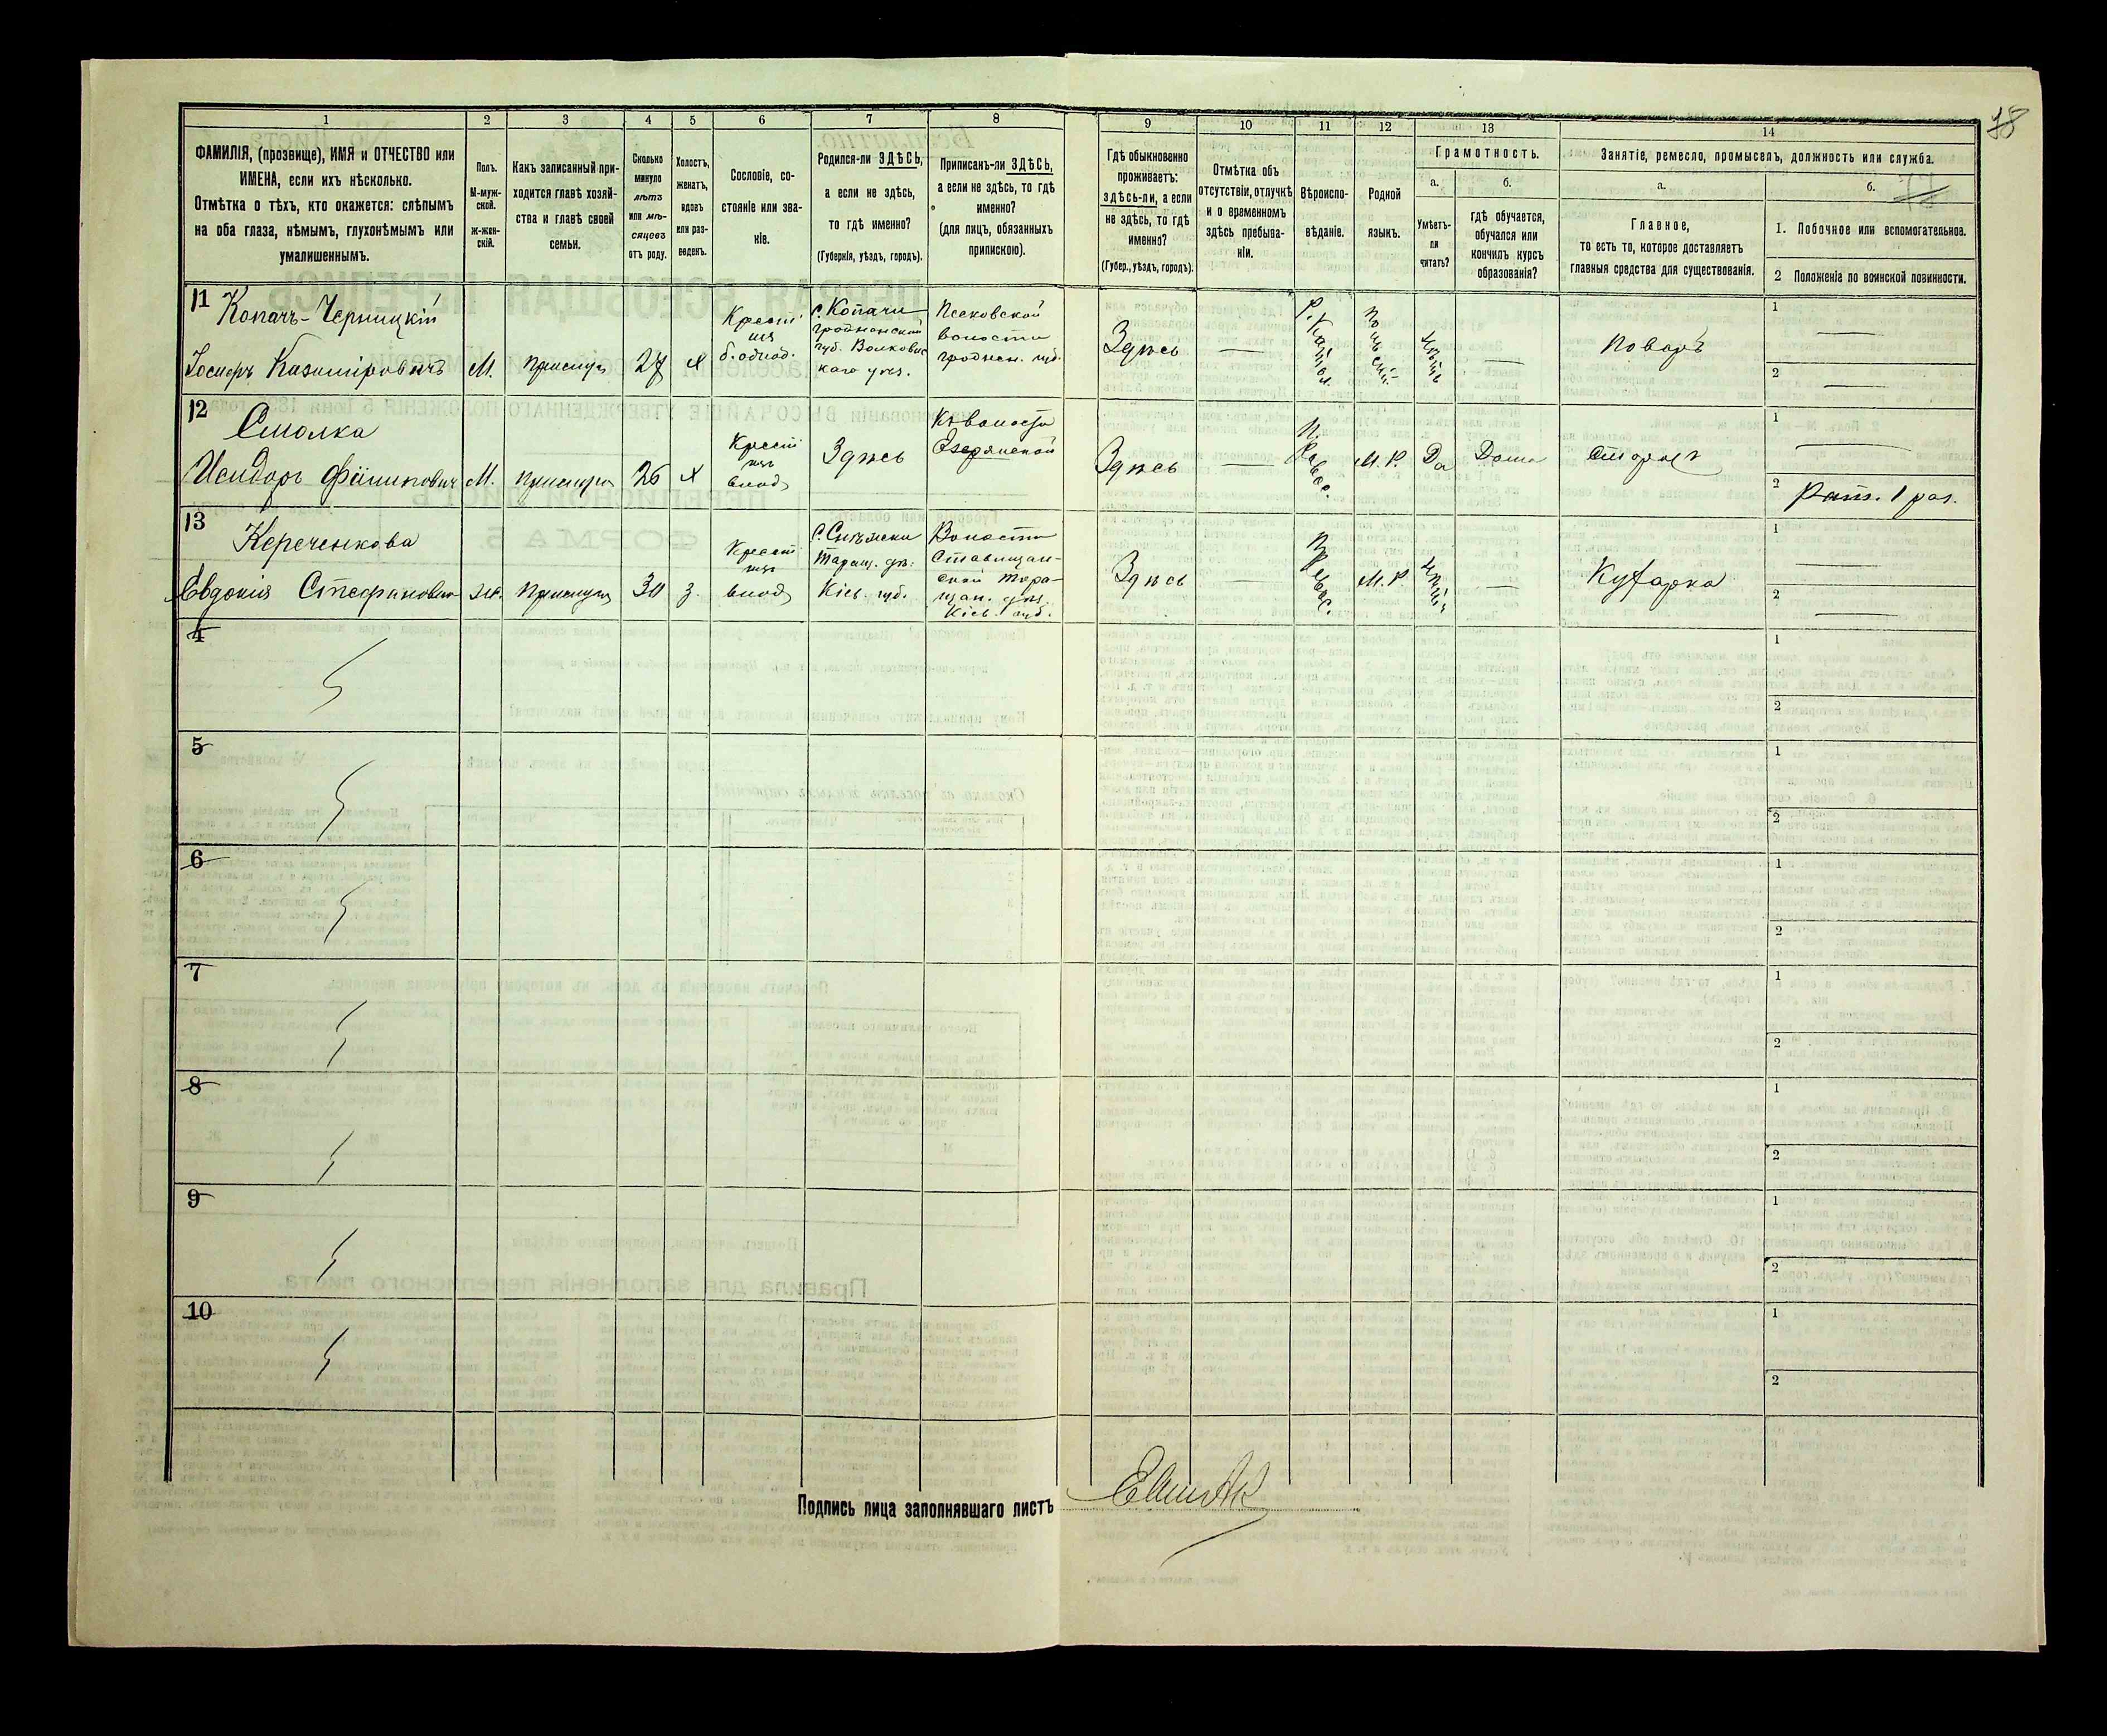 78
1
2
3
4
5
6
7
8
9
10
11
12
13
14
ФАМИЛІЯ, (прозвище), ИМЯ и ОТЧЕСТВО или
ИМЕНА, если ихъ нѣсколько.
Отмѣтка о тѣхъ, кто окажется: слѣпымъ
на оба глаза, нѣмымъ, глухонѣмымъ или
умалишеннымъ.
Полъ.
М-муж-
ской.
Ж-жен-
скій.
Какъ записанный при-
ходится главѣ хозяй-
ства и главѣ своей
семьи.
Сколько
минуло
лѣтъ
или мѣ-
сяцевъ
отъ роду.
Холостъ,
женатъ,
вдовъ
или раз-
веденъ.
Сословіе, со-
стояніе или зва-
ніе.
Родился-ли ЗДѢСЬ,
а если не здѣсь,
то гдѣ именно?
(Губернія, уѣздъ, городъ).
Приписанъ-ли ЗДѢСЬ,
а если не здѣсь, то гдѣ
именно?
(для лицъ, обязанныхъ
припискою).
Гдѣ обыкновенно
проживаетъ:
здѣсь-ли, а если
не здѣсь, то гдѣ
именно?
(Губер., уѣздъ, городъ).
Отмѣтка объ
отсутствіи, отлучкѣ
и о временномъ
здѣсь пребыва-
ніи.
Вѣроиспо-
вѣданіе.
Родной
языкъ.
Грамотность.
а.
Умѣетъ-
ли
читать?
б.
гдѣ обучается,
обучался или
кончилъ курсъ
образованія?
Занятіе, ремесло, промыселъ, должность или служба.
а.
Главное,
то есть то, которое доставляетъ
главныя средства для существованія.
б.
1. Побочное или вспомогательное.
2 Положеніе по воинской повинности.
11
Копачъ-Черницкій
Іосифъ Казиміровичъ
М.
Прислуга
27
Х
Крест
б. однод.
с. Копачи
Гродненской
губ. Волковыс
каго уѣз.
Песковской
волости
Гроднен. губ.
Здѣсь
Р. Катол.
Нѣтъ
Поваръ
1
2
12
Смолка
Исидоръ Филиповичъ
М.
Прислуга
26
Х
Крест
Здѣсь
Къ волости
Озерянской
Здѣсь
П. Равос.
М. Р.
Да
Дома
Сторожъ
1
2
Рат. 1 раз.
13
Кереченкова
Евдокія Стефановна
Ж.
Прислуга
30
З.
Крест
Таращ. уѣ:
Кіев. губ.
Волости
Ставищан-
ской Тара-
щан. уѣз.
Кіев. губ.
Здѣсь
М. Р.
Нѣтъ
Кухарка
1
2
4
1
2
5
1
2
6
1
2
7
1
2
8
1
2
9
1
2
10
1
2
Подпись лица заполнявшаго листъ